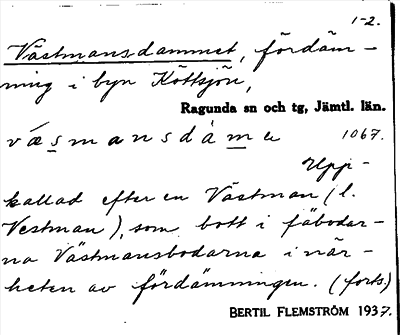 1-2.
Västmansdammet, fördäm-
ning i byn Köttsjön,
Ragunda sn och tg, Jämtl. län.
væsmansdàme 1067.
Upp-
kallad efter en Västman (l.
Vestman), som bott i fäbodar-
na Västmansbodarna i när-
heten av fördämningen. (forts.)
BERTIL FLEMSTRÖM 1937.